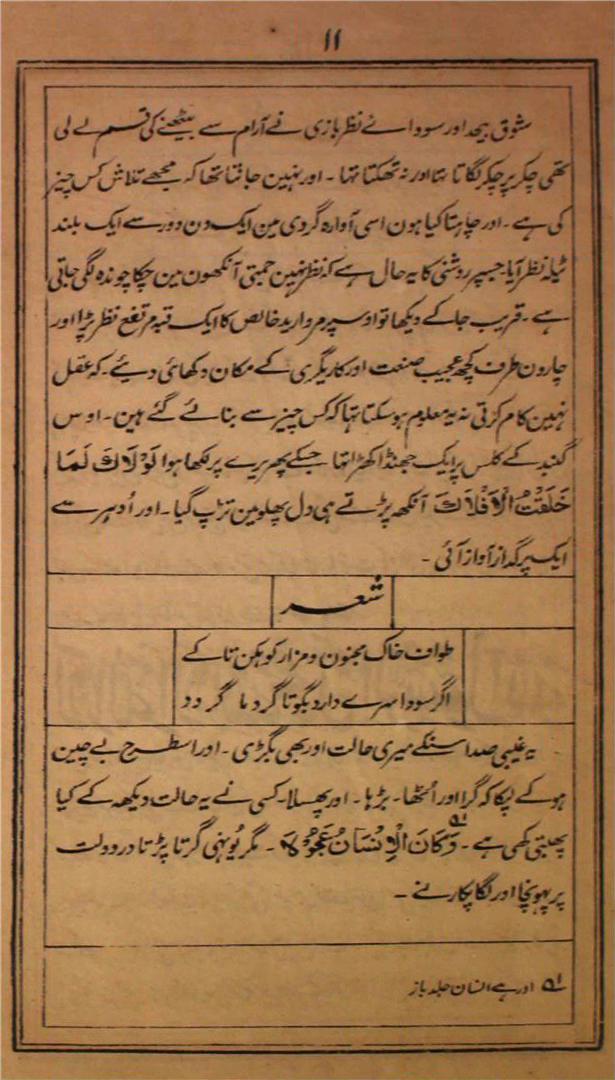 ۱۱
شوق بیحد اور سودائے نظر بازی نے آرام سے بیٹھنے کی قسم لے لی
تھی چکر پر چکر لگاتا تہا اور نہ تھکتا تہا ۔ اور نہین جانتا تھا کہ مجھے تلاش کس چیز
کی ہے ۔ اور چاہتا کیا ہون اسی آوارہ گردی مین ایک دن دور سے ایک بلند
ٹیلہ نظر آیا ۔ جسپر روشنی کا یہ حال ہے کہ نظر نہین جمتی آنکھون مین چکا چوندہ لگی جاتی
ہے ۔ قریب جا کے دیکھا تو اوسپر مروارید خالص کا ایک قبہ مرتفع نظر پڑا اور
چارون طرف کچھ عجیب صنعت اور کاریگری کے مکان دکھائی دیئے ۔ کہ عقل
نہین کام کرتی نہ یہ معلوم ہو سکتا تہا کہ کس چیز سے بنائے گئے ہین ۔ اوس
گنبد کے کلس پر ایک جھنڈا کھڑا تہا جسکے پھریرے پر لکھا ہوا لَوْلَاکَ لَمَا
خَلَقْتُ الْاَفْلَاکَ آنکھ پڑتے ہی دل پھلو مین تڑپ گیا ۔ اور اُدہر سے
ایک پر گداز آواز آئی ۔
شعر
طواف خاک مجنون و مزار کوہکن تا کے
اگر سودا سرے دارد بگو تا گرد ما گردد
یہ غیبی صدا سنکے میری حالت اور بھی بگڑی ۔ اور اسطرح بے چین
ہو کے لپکا کہ گرا اور اُٹھا ۔ بڑہا ۔ اور پھسلا ۔ کسی نے یہ حالت دیکھ کے کیا
پھبتی کہی ہے ۔ وَکَانَ الْاِنْسَانُ عَجُوْلًا ؁۱ ۔ مگر یُونہی گرتا پڑتا در دولت
پر پہونچا اور لگا پکارنے ۔
؁۱ اور ہے انسان جلد باز